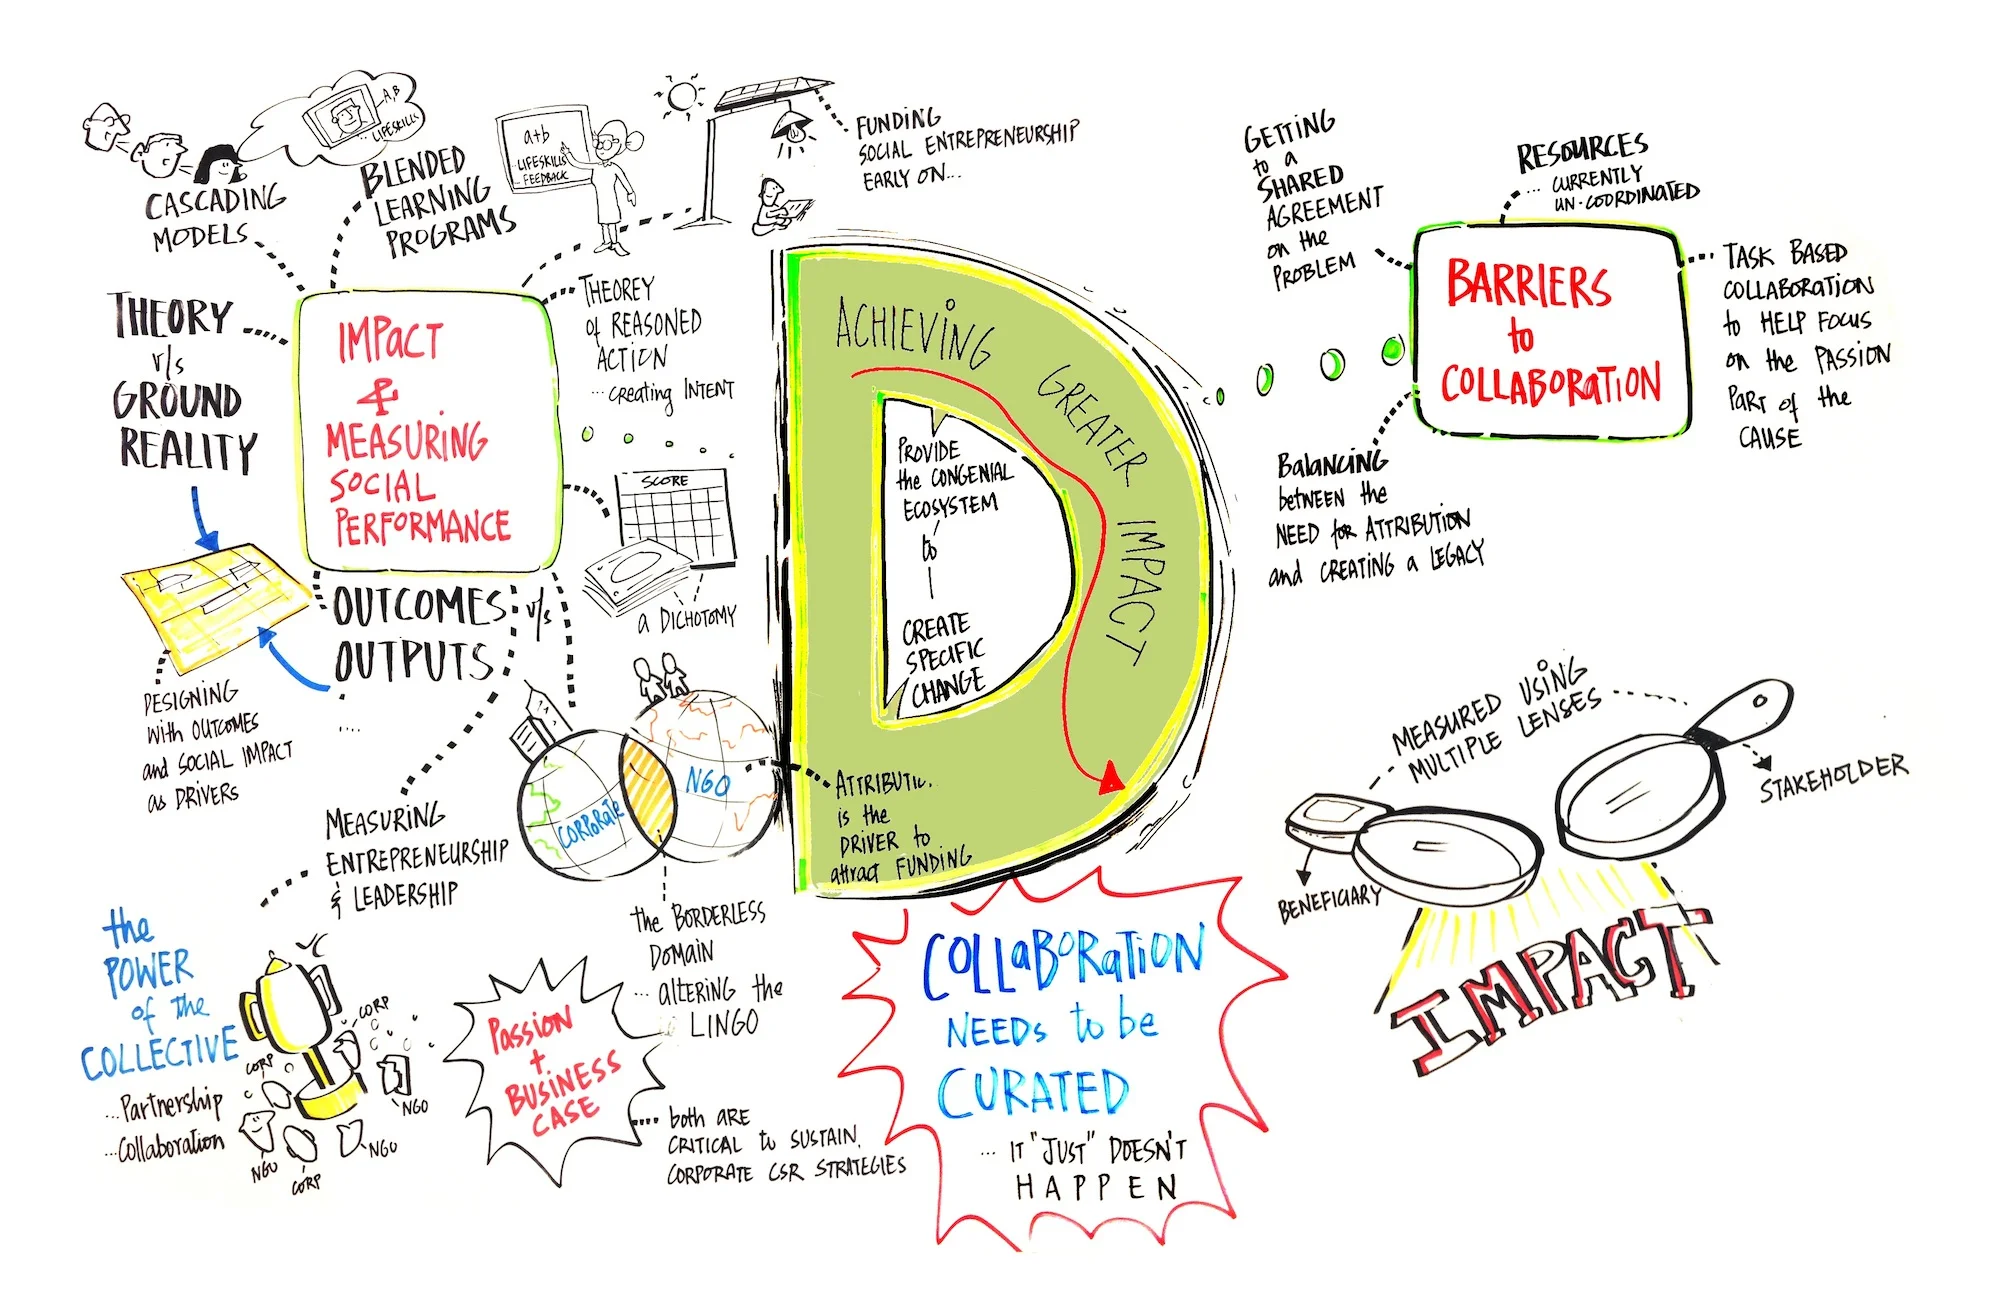 A,B
LIFESKILLS
CASCADING
MODELS
BLENDED
LEARNING
PROGRAMS
a+b
LIFESKILLS
FEEDBACK
FUNDING
SOCIAL ENTREPRENEURSHIP
EARLY ON...
THEORY
v/s
GROUND
REALITY
IMPACT
&
MEASURING
SOCIAL
PERFORMANCE
THEOREY
of REASONED
ACTION
...creating INTENT
SCORE
a DICHOTOMY
OUTCOMES v/s
OUTPUTS
....
DESIGNING
with OUTCOMES
and SOCIAL IMPACT
as DRIVERS
MEASURING
ENTREPRENEURSHIP
& LEADERSHIP
CORPORATE
NGO
the BORDERLESS
DOMAIN
... altering the
LINGO
the
POWER
of the
COLLECTIVE
...Partnership
...Collaboration
CORP
CORP
NGO
NGO
CORP
NGO
PASSION
+
BUSINESS
CASE
both are
CRITICAL to SUSTAIN.
CORPORATE CSR STRATEGIES
D
ACHIEVING GREATER IMPACT
PROVIDE
the CONGENIAL
ECOSYSTEM
to
CREATE
SPECIFIC
CHANGE
is the
DRIVER to
attract FUNDING
COLLABORATION
NEEDS to be
CURATED
... IT "JUST" DOESN'T
HAPPEN
GETTING
to a
SHARED
AGREEMENT
on the
PROBLEM
RESOURCES
... CURRENTLY
UN-COORDINATED
BARRIERS
to
COLLABORATION
TASK BASED
COLLABORATION
to HELP FOCUS
on the PASSION
PART of the
CAUSE
Balancing
between the
NEED for ATTRIBUTION
and CREATING a LEGACY
MEASURED USING
MULTIPLE LENSES
STAKEHOLDER
BENEFICIARY
IMPACT